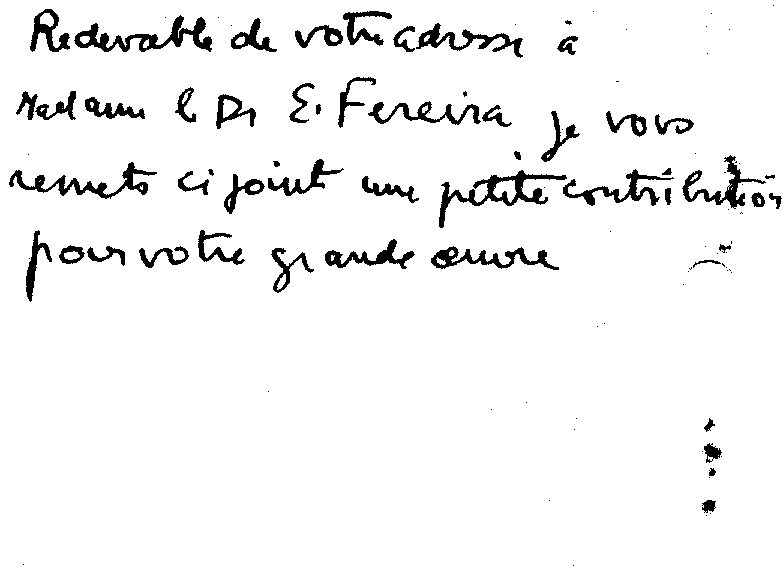 Redevable de votre adresse à
Madame le Dr E. Fereira je vous
remets ci joint une petite contribution
pour votre grande œuvre